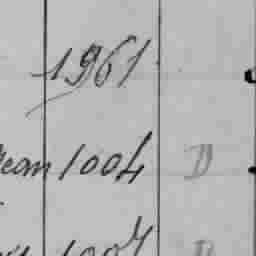 1961
ean 1004 D
1007 D